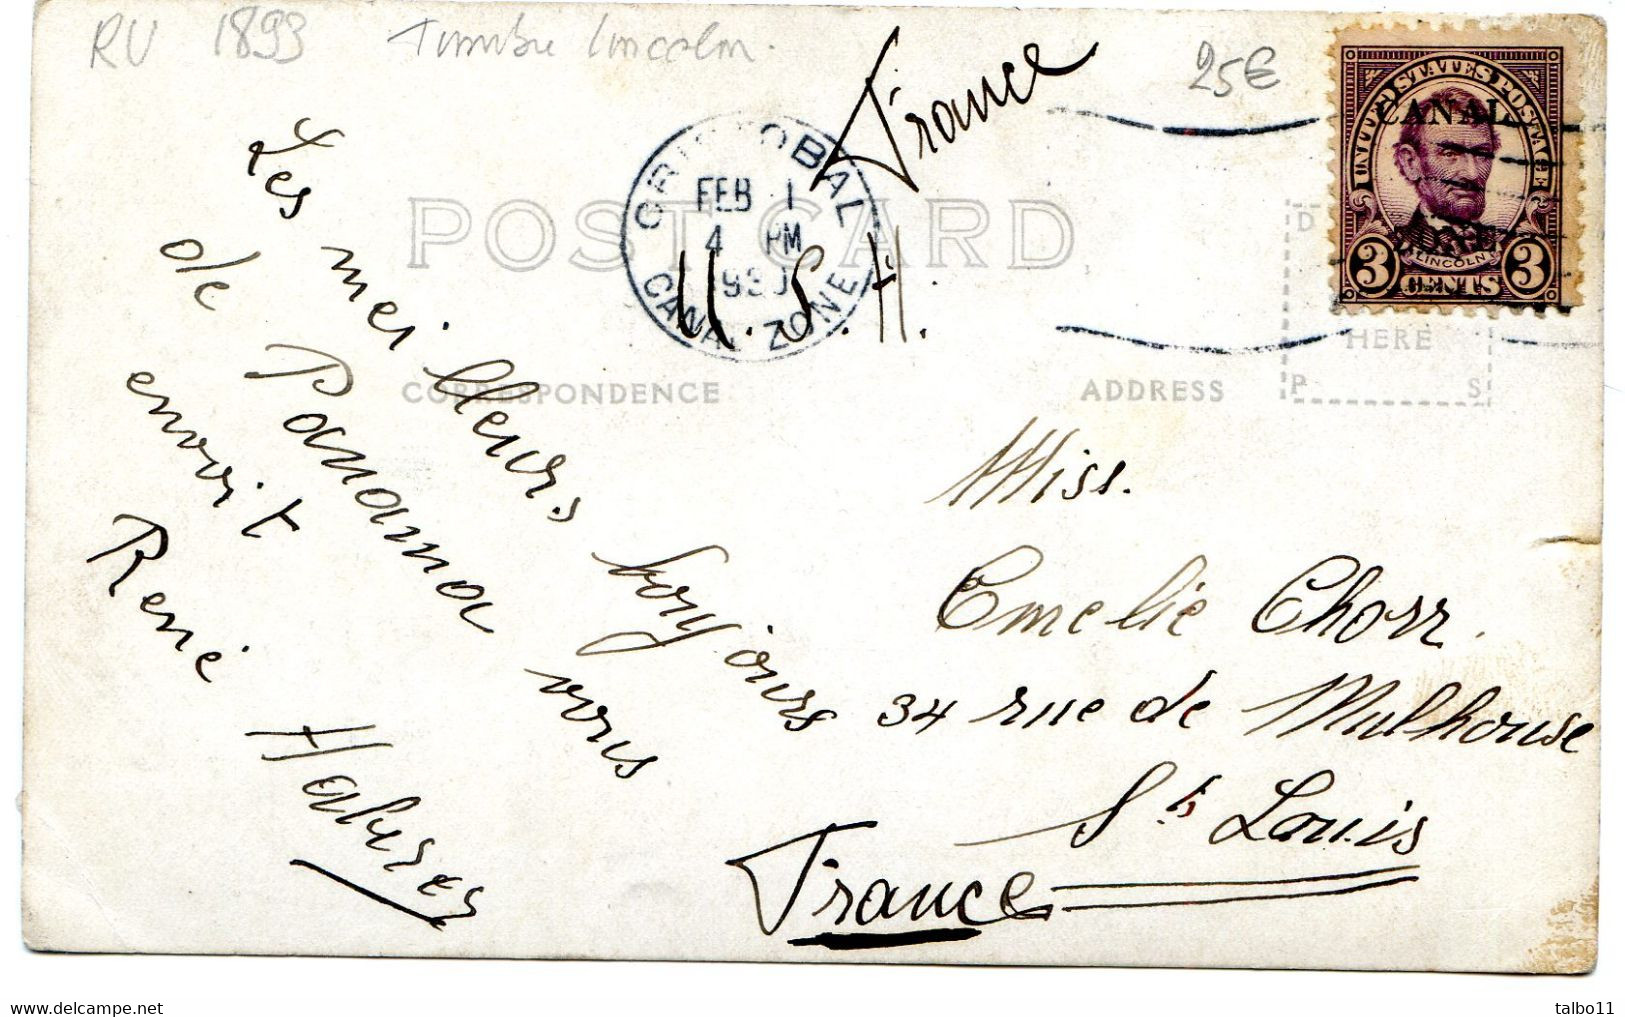 RU 1893 Timbre lincoln.
25€
France
U.S.H.
CRISTOBAL
FEB 1
4 PM
CANAL ZONE
UNITED STATES POSTAGE
CANAL
ZONE
LINCOLN
3 CENTS 3
POST CARD
CORRESPONDENCE
ADDRESS
HERE
P S
Les meilleurs bonjours
de Panama vous
envoit
René
Miss.
Emelie Chorr.
34 rue de Mulhouse
St Louis
France
talbo11